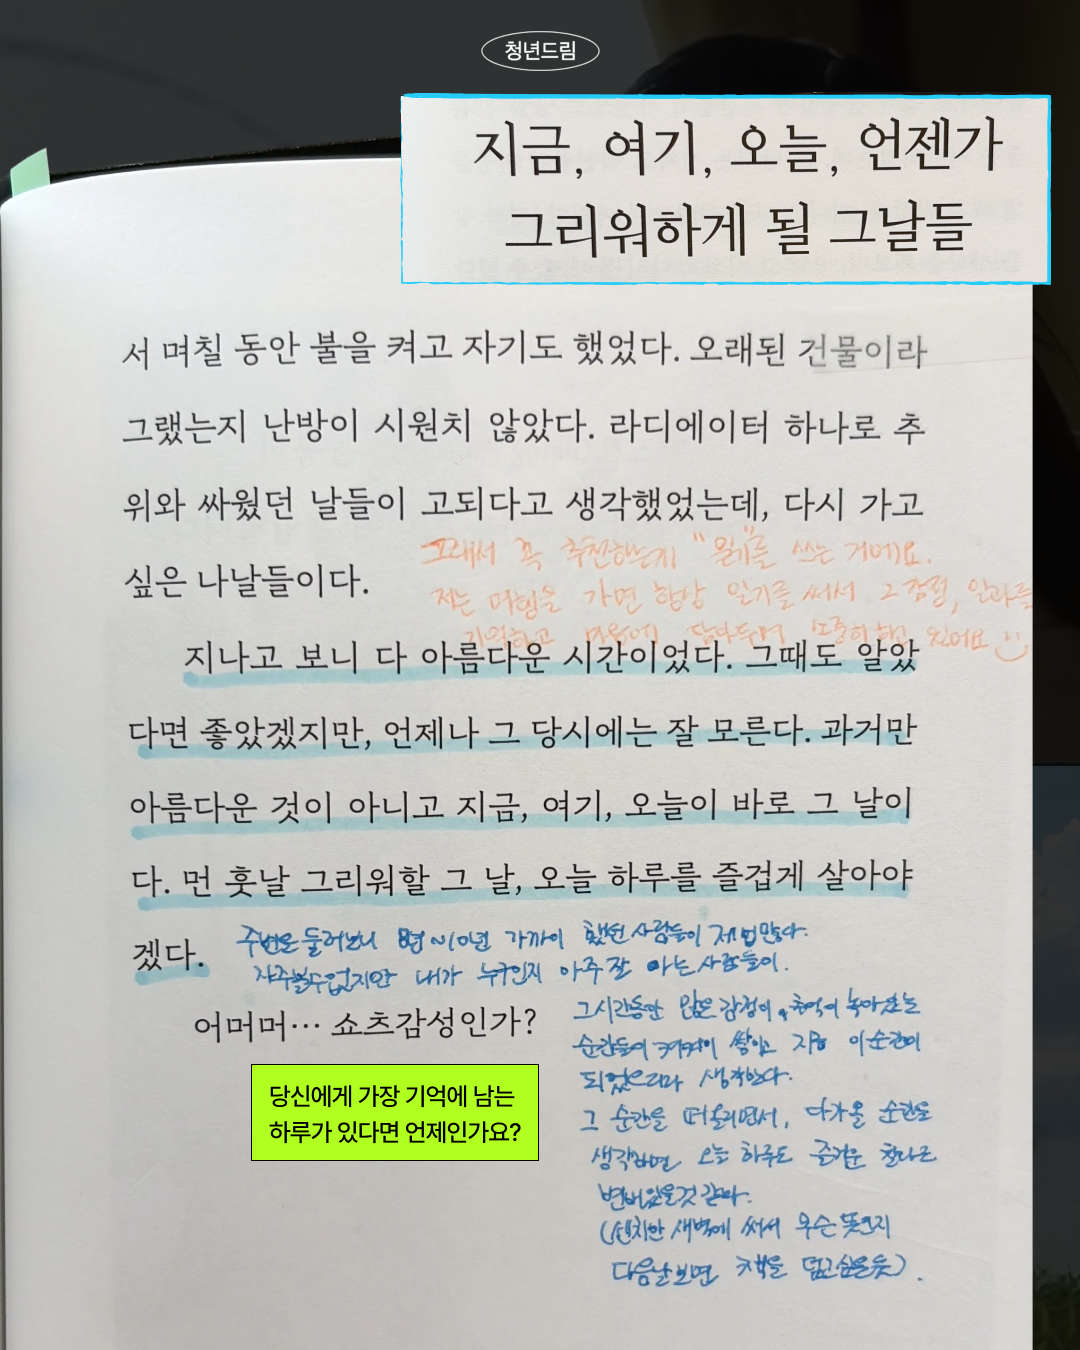 청년드림
지금, 여기, 오늘, 언젠가
그리워하게 될 그날들
서 며칠 동안 불을 켜고 자기도 했었다. 오래된 건물이라
그랬는지 난방이 시원치 않았다. 라디에이터 하나로 추
위와 싸웠던 날들이 고되다고 생각했었는데, 다시 가고
싶은 나날들이다.
그래서 꼭 추천하는게 "일기"를 쓰는 거예요.
저는 여행을 가면 항상 일기를 써서 그 감정,
기억하고 마음에 담아두며 소중히 하고 있어요
지나고 보니 다 아름다운 시간이었다. 그때도 알았
다면 좋았겠지만, 언제나 그 당시에는 잘 모른다. 과거만
아름다운 것이 아니고 지금, 여기, 오늘이 바로 그 날이
다. 먼 훗날 그리워할 그 날, 오늘 하루를 즐겁게 살아야
겠다.
주변을 둘러보니 8년~10년 가까이 했던 사람들이 제법 많다.
자주볼수없지만 내가 누구인지 아주 잘 아는 사람들이.
어머머… 쇼츠감성인가?
그시간동안 많은 감정이, 추억이 녹아있는
순간들이 켜켜이 쌓이고 지금 이순간이
되었으리라 생각한다.
그 순간을 떠올리면서, 다가올 순간을
생각하면 오늘 하루도 즐거운 찰나로
변해있을것 같다.
(센치한 새벽에 써서 무슨 뜻인지
다음날 보면 책을 덮고싶을듯).
당신에게 가장 기억에 남는
하루가 있다면 언제인가요?